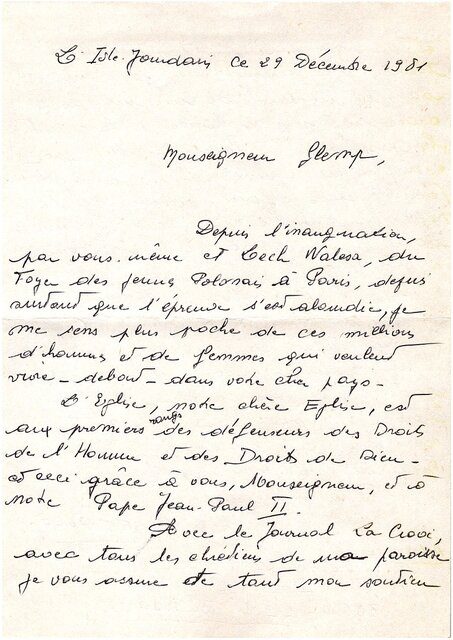 L'Isle-Jourdain ce 29 Décembre 1981
Monseigneur Glemp,
Depuis l'inauguration,
par vous-même et Lech Walesa, du
Foyer des jeunes Polonais à Paris, depuis
surtout que l'épreuve s'est alourdie, je
me sens plus proche de ces millions
d'hommes et de femmes qui veulent
vivre - debout - dans votre cher pays -
L'Eglise, notre chère Eglise, est
aux premiers rangs des défenseurs des Droits
de l'Homme et des Droits de Dieu -
et ceci grâce à vous, Monseigneur, et à
notre Pape Jean-Paul II.
Avec le Journal La Croix,
avec tous les chrétiens de ma paroisse
je vous assure de tout mon soutien